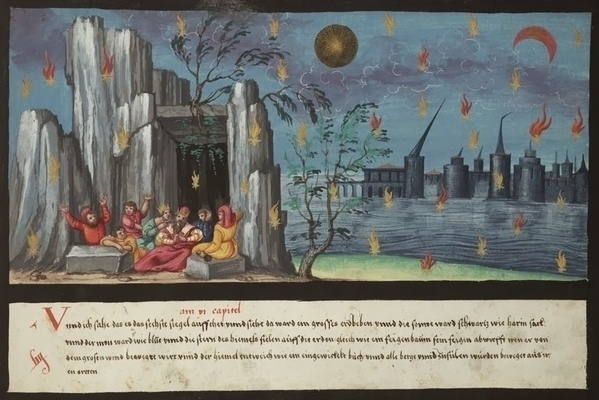 am vi capitel
Vnnd ich sahe das es das sechste sigel auffthet vnnd siehe da ward ein grosses erdbeben vnnd die sonne ward schwartz wie harin sack
vnnd der mon ward wie blůt vnnd die stern des himels fielen auff die erden gleich wie ein feigenbaum sein feigen abwirfft wen er von
dem grossen wind bewegt wirt vnnd der himel entweich wie ein eingewickelt bůch vnnd alle berge vnnd Insulen wurden beweget aus iren
en orten